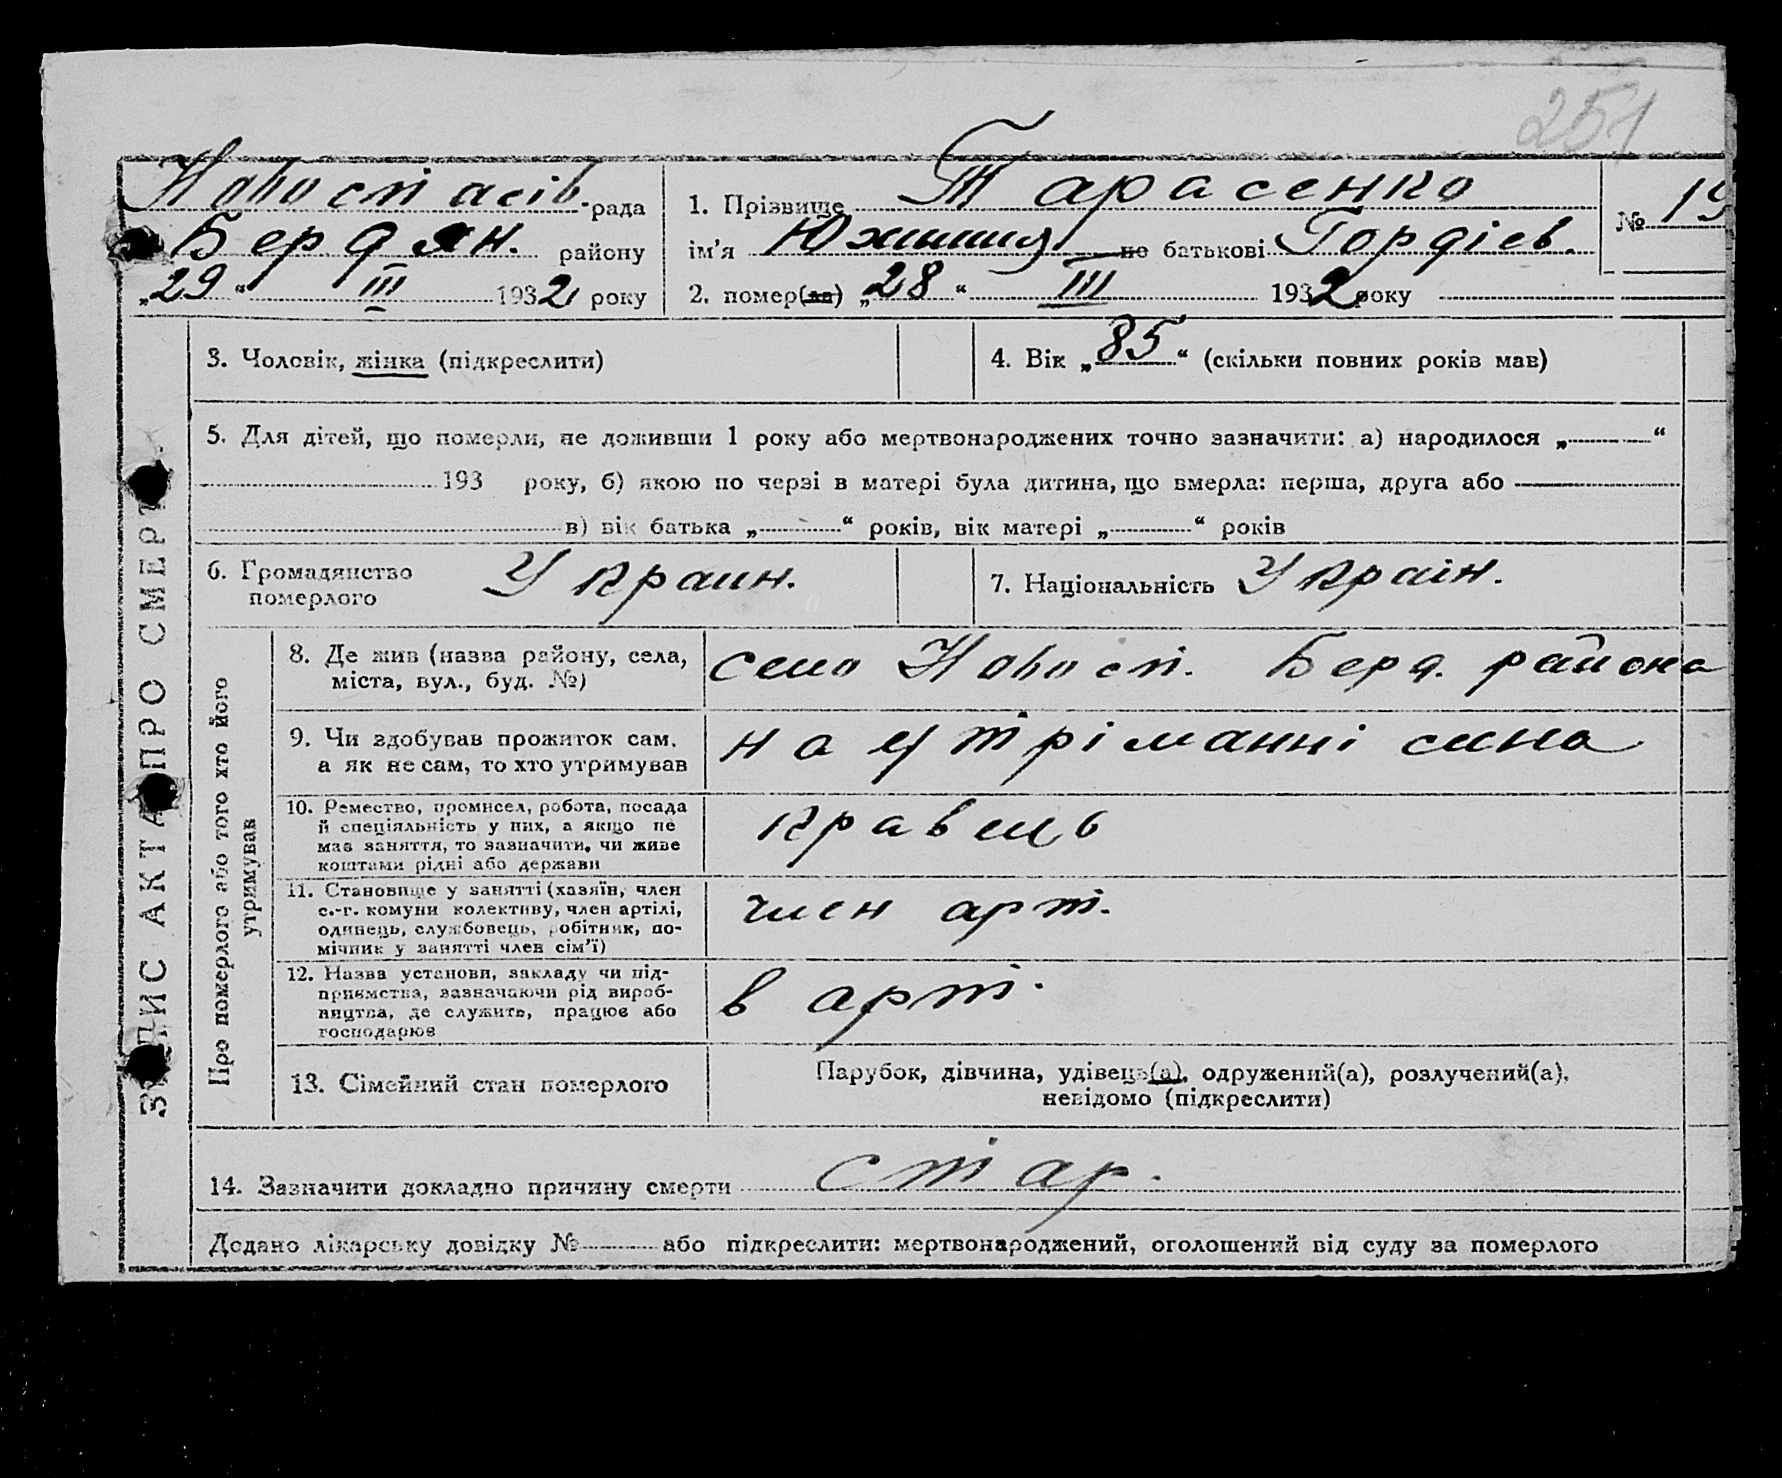 251
Новоспасів. рада
Бердян. району
„29“ III 1932 року
1. Прізвище Тарасенко
ім'я Юхимия по батькові Гордієв.
2. помер(ла) „28“ III 1932 року
№ 19
3. Чоловік, жінка (підкреслити)
4. Вік „85“ (скільки повних років мав)
5. Для дітей, що померли, не доживши 1 року або мертвонароджених точно зазначити: а) народилося „ “
193 року, б) якою по черзі в матері була дитина, що вмерла: перша, друга або
в) вік батька „ “ років, вік матері „ “ років
6. Громадянство
померлого
Украин.
7. Національність Україн.
ЗАПИС АКТА ПРО СМЕРТЬ
Про померлого або того хто його
утримував
8. Де жив (назва району, села,
міста, вул., буд. №)
село Новосп. Берд. района
9. Чи здобував прожиток сам,
а як не сам, то хто утримував
на утріманні сина
10. Ремество, промисел, робота, посада
й спеціяльність у них, а якщо не
мав заняття, то зазначити, чи живе
коштами рідні або держави
кравець
11. Становище у занятті (хазяїн, член
с.-г. комуни колективу, член артілі,
одинець, службовець, робітник, по-
мічник у занятті член сім'ї)
член арт.
12. Назва установи, закладу чи під-
приємства, зазначаючи рід вироб-
ництва, де служить, працює або
господарює
в арт.
13. Сімейний стан померлого
Парубок, дівчина, удівець(а), одружений(а), розлучений(а),
невідомо (підкреслити)
14. Зазначити докладно причину смерти стар.
Додано лікарську довідку № або підкреслити: мертвонароджений, оголошений від суду за померлого